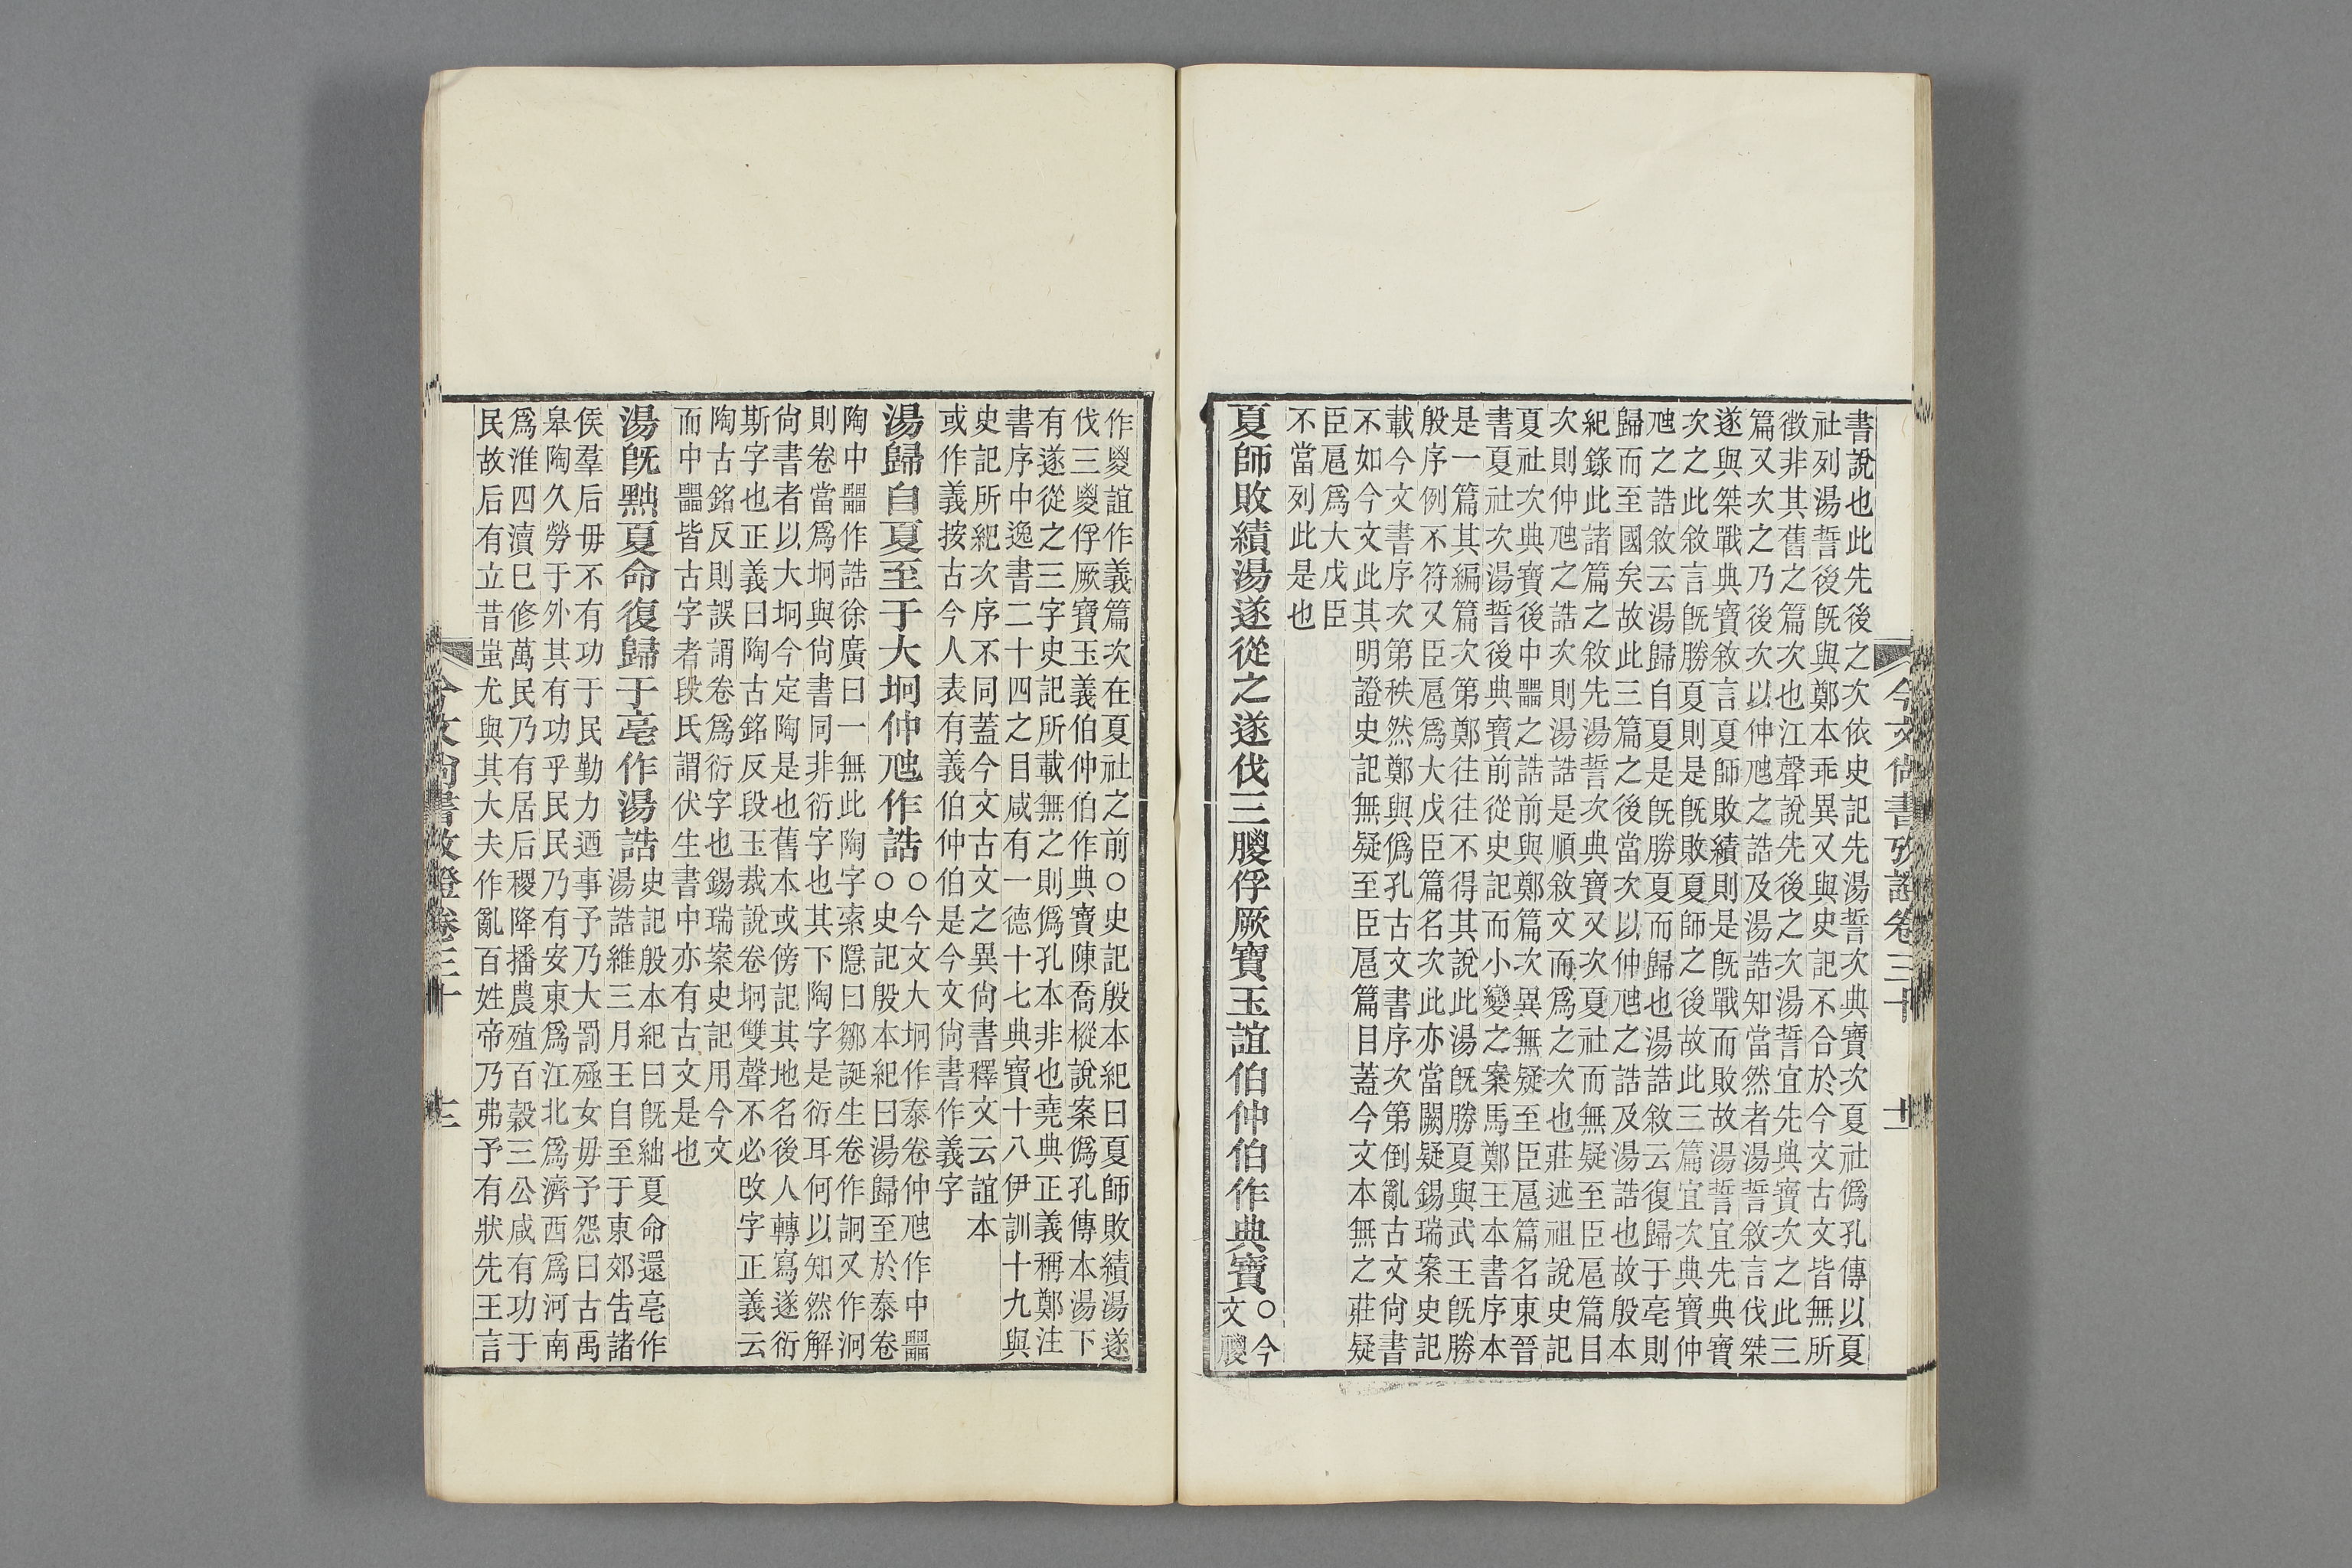 今文尚書攷證卷三十　十一
書說也此先後之次依史記先湯誓次典寶次夏社僞孔傳以夏
社列湯誓後旣與鄭本乖異又與史記不合於今文古文皆無所
徵非其舊之篇次也江聲說先後之次湯誓宜先典寶次之此三
篇又次之乃後次以仲虺之誥及湯誥知當然者湯誓敘言伐桀
遂與桀戰典寶敘言夏師敗績則是旣戰而敗故湯誓宜先典寶
次之此敘言旣勝夏則是旣敗夏師之後故此三篇宜次典寶仲
虺之誥敘云湯歸自夏是旣勝夏而歸也湯誥敘云復歸于亳則
歸而至國矣故此三篇之後當次以仲虺之誥及湯誥也故殷本
紀錄此諸篇之敘先湯誓次典寶又次夏社而無疑至臣扈篇目
次則仲虺之誥次則湯誥是順敘文而爲之次也莊述祖說史記
夏社次典寶後中𤳳之誥前與鄭篇次異無疑至臣扈篇名東晉
書夏社次湯誓後典寶前從史記而小變之案馬鄭王本書序本
是一篇其編篇次第鄭往往不得其說此湯旣勝夏與武王旣勝
殷序例不符又臣扈爲大戊臣篇名次此亦當闕疑錫瑞案史記
載今文書序次第秩然鄭與僞孔古文書序次第倒亂古文尚書
不如今文此其明證史記無疑至臣扈篇目蓋今文本無之莊疑
臣扈爲大戊臣
不當列此是也
夏師敗績湯遂從之遂伐三朡俘厥寶玉誼伯仲伯作典寶○今
文朡
作㚇誼作義篇次在夏社之前○史記殷本紀曰夏師敗績湯遂
伐三㚇俘厥寶玉義伯仲伯作典寶陳喬樅說案僞孔傳本湯下
有遂從之三字史記所載無之則僞孔本非也堯典正義稱鄭注
書序中逸書二十四之目咸有一德十七典寶十八伊訓十九與
史記所紀次序不同蓋今文古文之異尚書釋文云誼本
或作義按古今人表有義伯仲伯是今文尚書作義字
湯歸自夏至于大坰仲虺作誥○今文大坰作泰卷仲虺作中𤳳
○史記殷本紀曰湯歸至於泰卷
陶中𤳳作誥徐廣曰一無此陶字索隱曰鄒誕生卷作詗又作泂
則卷當爲坰與尚書同非衍字也其下陶字是衍耳何以知然解
尚書者以大坰今定陶是也舊本或傍記其地名後人轉寫遂衍
斯字也正義曰陶古銘反段玉裁說卷坰雙聲不必改字正義云
陶古銘反則誤謂卷爲衍字也錫瑞案史記用今文
而中𤳳皆古字者段氏謂伏生書中亦有古文是也
湯旣黜夏命復歸于亳作湯誥史記殷本紀曰旣絀夏命還亳作
湯誥維三月王自至于東郊告諸
侯羣后毋不有功于民勤力迺事予乃大罰殛女毋予怨曰古禹
皋陶久勞于外其有功乎民民乃有安東爲江北爲濟西爲河南
爲淮四瀆已修萬民乃有居后稷降播農殖百穀三公咸有功于
民故后有立昔蚩尤與其大夫作亂百姓帝乃弗予有狀先王言
今文尚書攷證卷三十